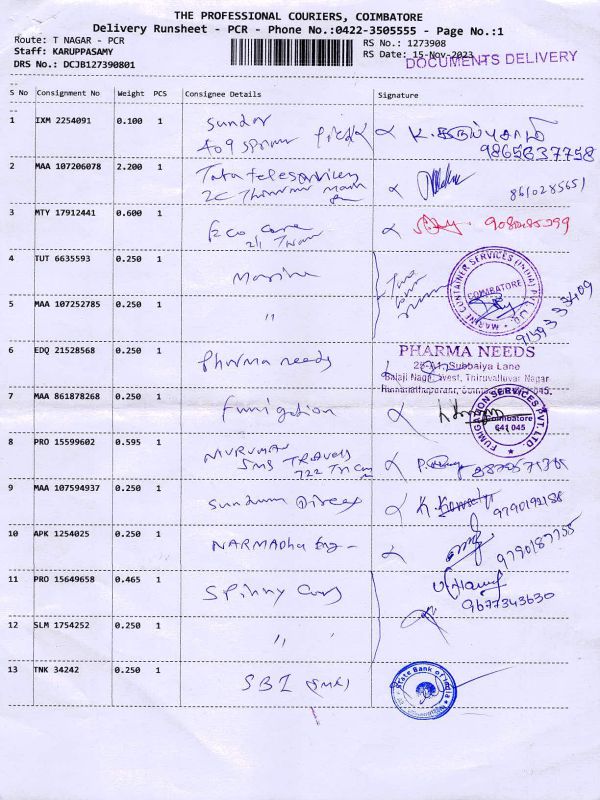 THE PROFESSIONAL COURIERS, COIMBATORE
Delivery Runsheet - PCR - Phone No.:0422-3505555 - Page No.:1
Route: T NAGAR - PCR
RS No.: 1273908
Staff: KARUPPASAMY
RS Date: 15-Nov-2023
DRS No.: DCJB127390801
DOCUMENTS DELIVERY
S No Consignment No Weight PCS Consignee Details Signature
1 IXM 2254091 0.100 1 Sundar
9865837758
2 MAA 107206078 2.200 1 Tata teleservices
8610285651
3 MTY 17912441 0.600 1 Eco care
4 TUT 6635593 0.250 1 Marine
MARINE CONTAINER SERVICES (INDIA) PVT. LTD.
COIMBATORE
5 MAA 107252785 0.250 1 "
6 EDQ 21528568 0.250 1 Pharma needs
PHARMA NEEDS
Subbaiya Lane
Balaji Nagar West, Thiruvalluvar Nagar
7 MAA 861878268 0.250 1 Fumigation
FUMIGATION SERVICES PVT. LTD
Coimbatore
641 045
8 PRO 15599602 0.595 1
SMS TRAVELS
9 MAA 107594937 0.250 1 Sundram
9790192186
10 APK 1254025 0.250 1 NARMADha Eng -
9790187755
11 PRO 15649658 0.465 1 Spinny Cars
9677343630
12 SLM 1754252 0.250 1 " "
13 TNK 34242 0.250 1 SBI
State Bank of India